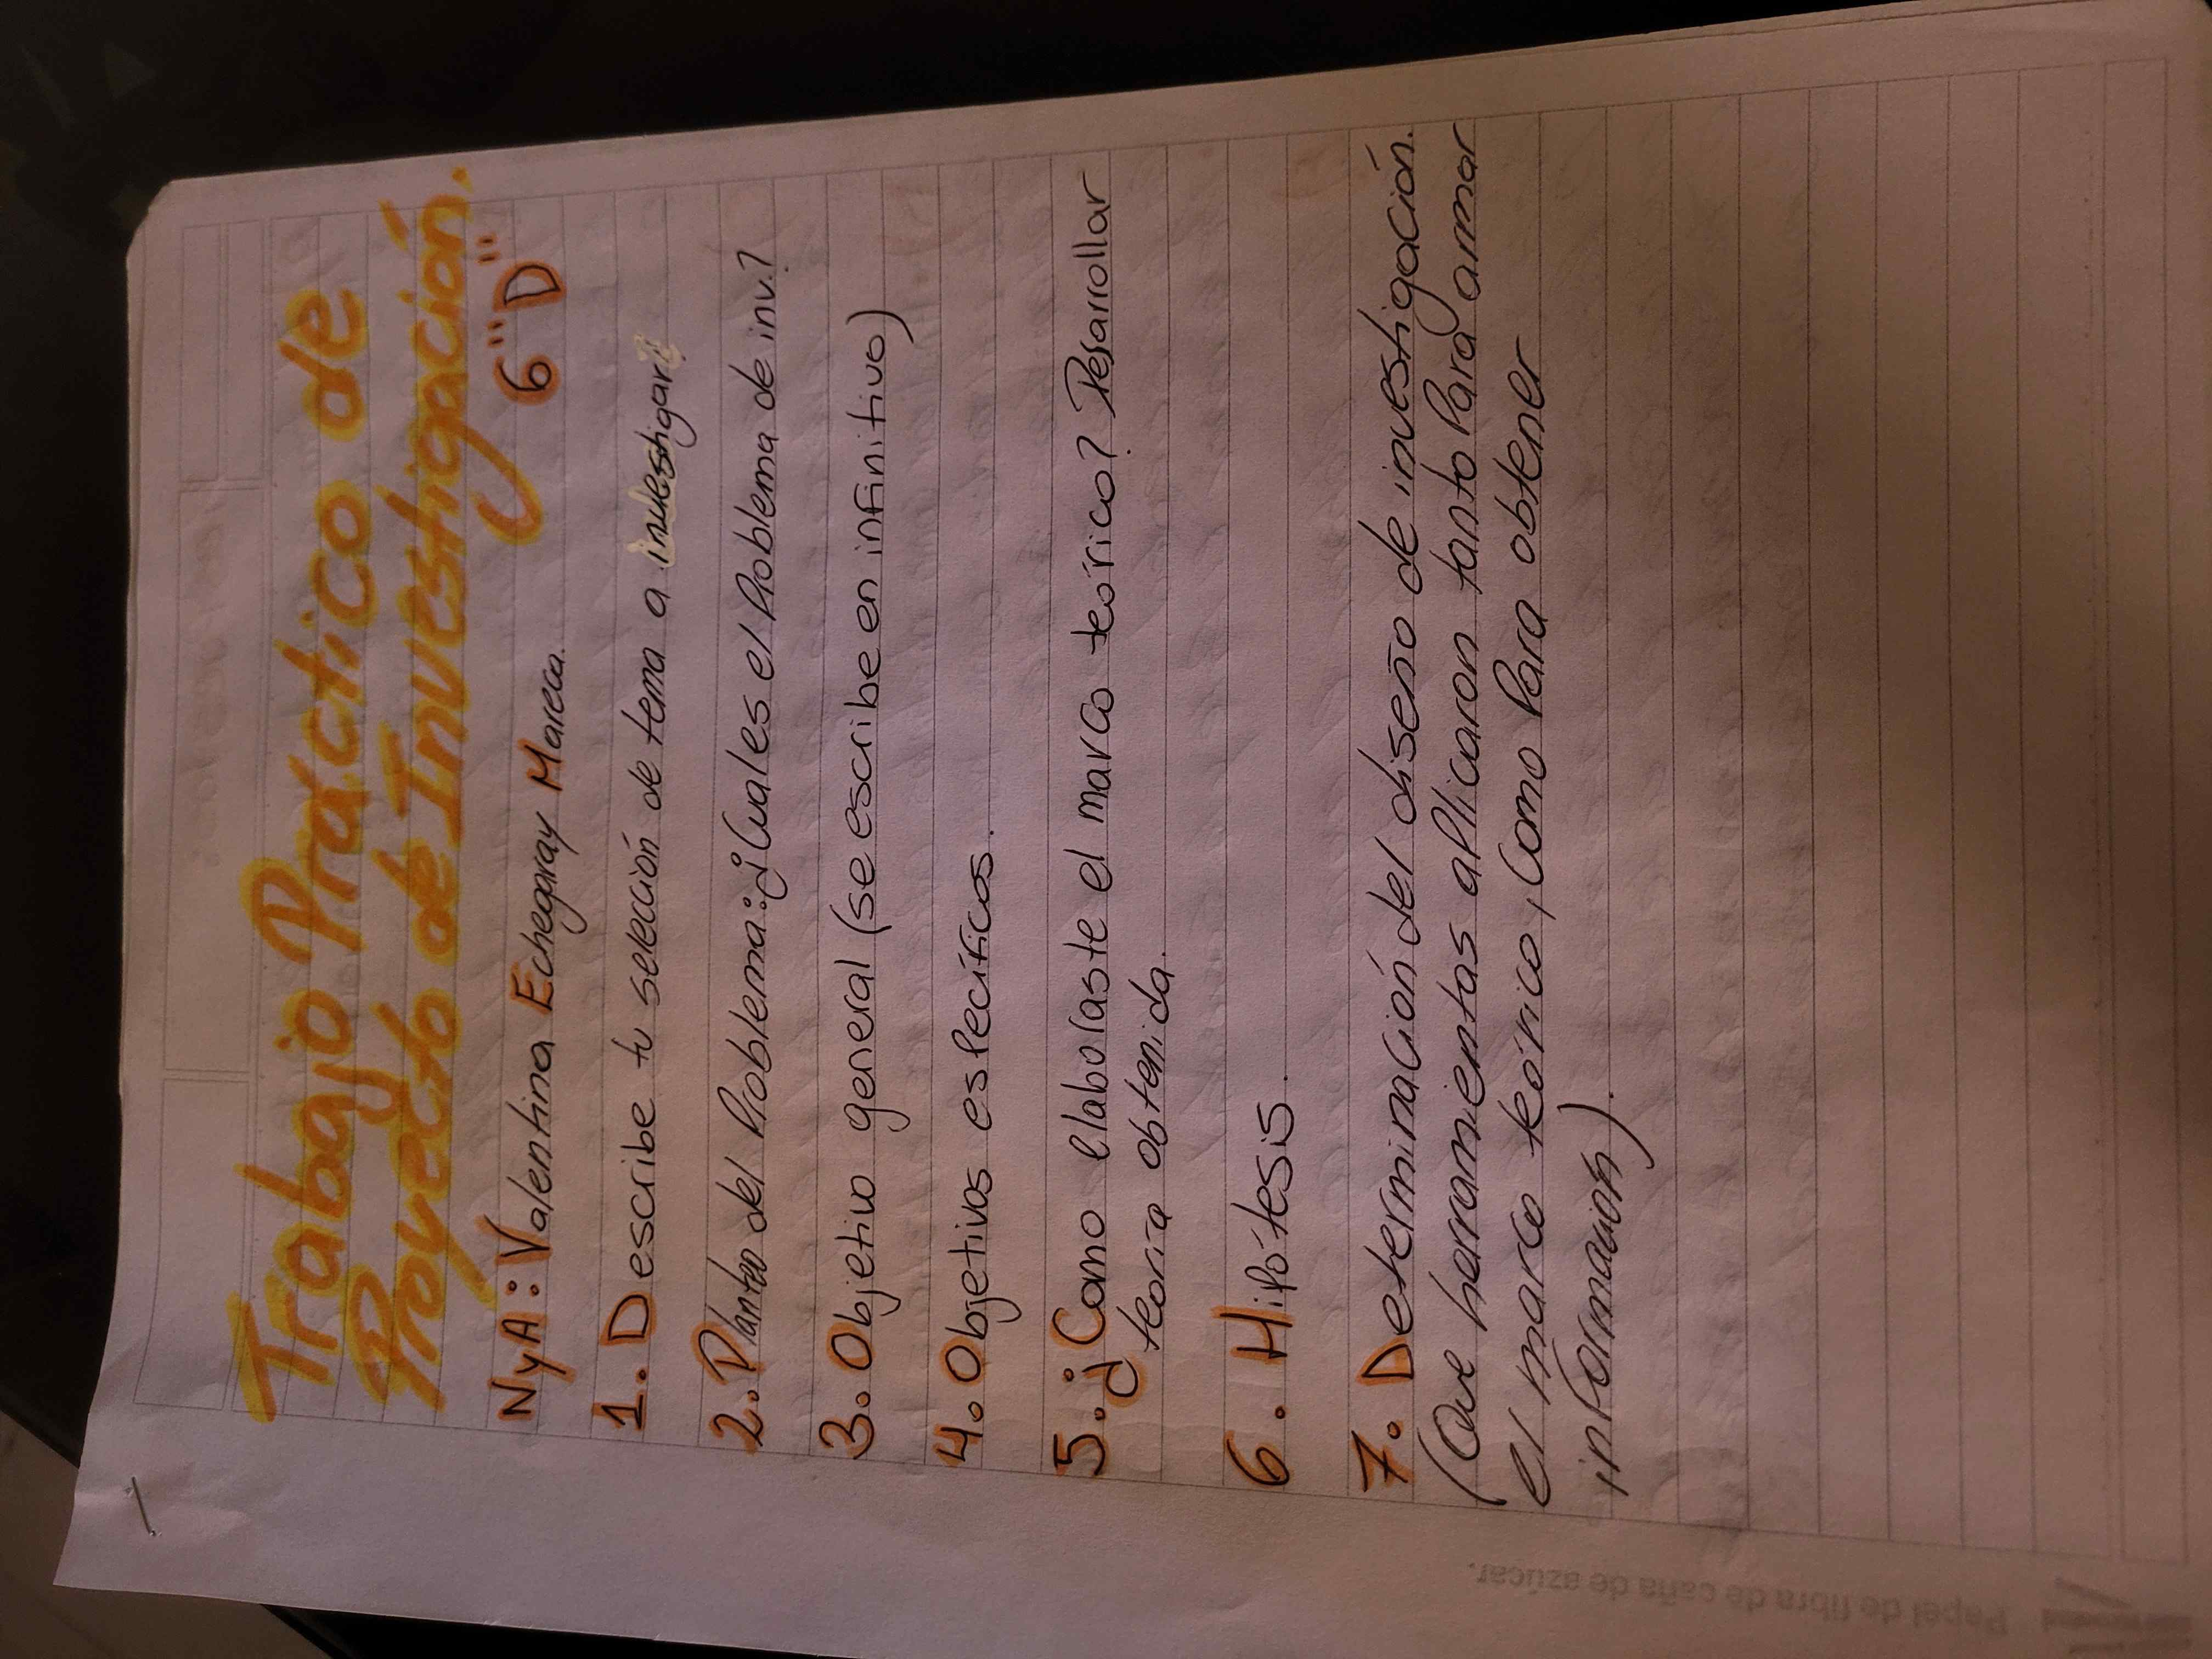 Trabajo Práctico de
Proyecto de Investigación.
6"D"
NyA: Valentina Echegaray Mareca.
1. Describe tu selección de tema a investigar.
2. Planteo del Problema: ¿Cual es el Problema de inv.?
3. Objetivo general (se escribe en infinitivo)
4. Objetivos específicos.
5. ¿Como elaboraste el marco teórico? Desarrollar
teoría obtenida.
6. Hipótesis.
7. Determinación del diseño de investigación.
(Que herramientas aplicaron tanto Para armar
el marco teórico, como Para obtener
información).
Papel de fibra de caña de azúcar.